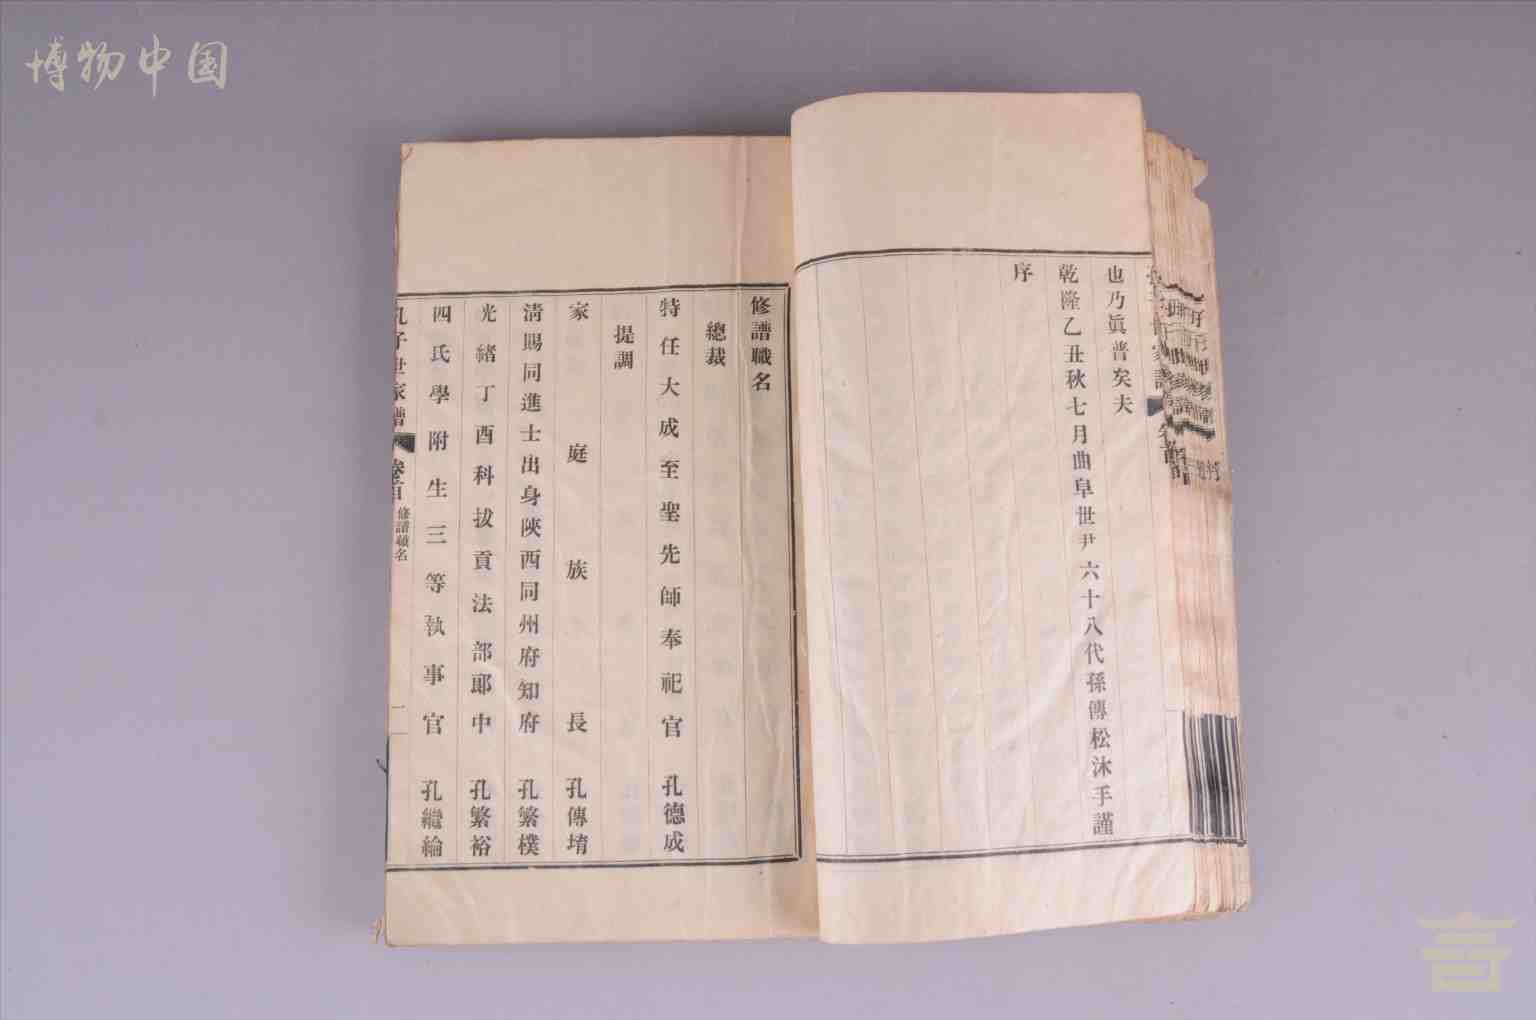 博物中国
也乃眞普矣夫
乾隆乙丑秋七月曲阜世尹六十八代孫傳松沐手謹
序
修譜職名
總裁
特任大成至聖先師奉祀官 孔德成
提調
家庭族長 孔傳堉
清賜同進士出身陝西同州府知府 孔繁樸
光緒丁酉科拔貢法部郎中 孔繁裕
四氏學附生三等執事官 孔繼綸
孔子世家譜 卷首 修譜職名 一